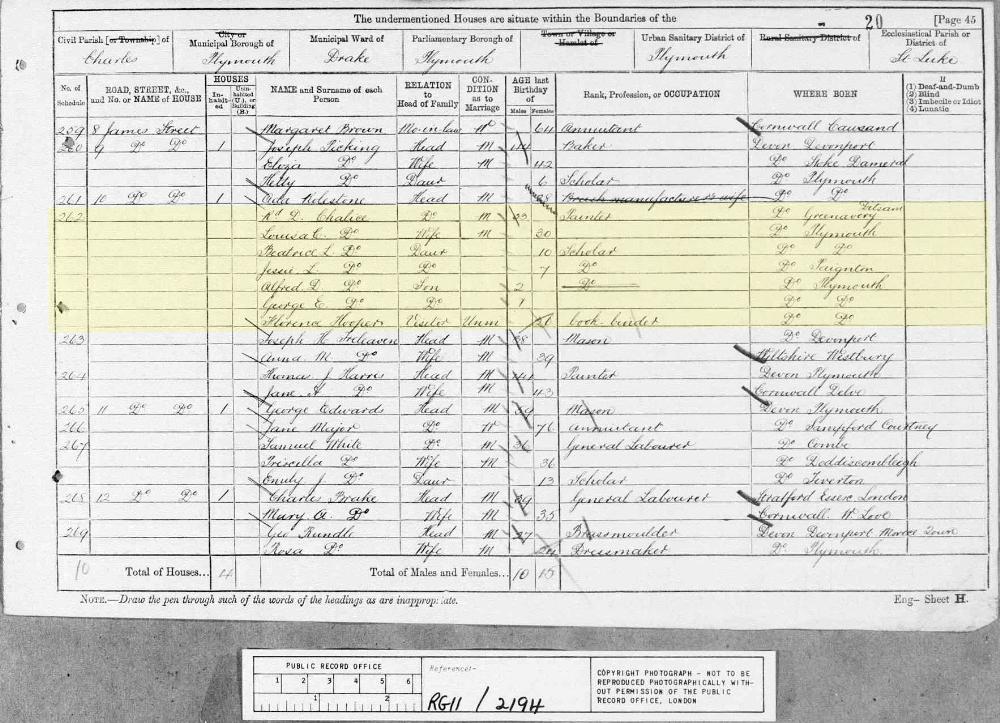 The undermentioned Houses are situate within the Boundaries of the 20 [Page 45
Civil Parish [or Township] of Charles
City or Municipal Borough of Plymouth
Municipal Ward of Drake
Parliamentary Borough of Plymouth
Town or Village or Hamlet of
Urban Sanitary District of Plymouth
Rural Sanitary District of
Ecclesiastical Parish or District of St. Luke
No. of Schedule
ROAD, STREET, &c., and No. or NAME of HOUSE
HOUSES
In-habit-ed
Unin-habited (U.), or Building (B.)
NAME and Surname of each Person
RELATION to Head of Family
CON-DITION as to Marriage
AGE last Birthday of
Males Females
Rank, Profession, or OCCUPATION
WHERE BORN
If
(1) Deaf-and-Dumb
(2) Blind
(3) Imbecile or Idiot
(4) Lunatic
259 8 James Street Margaret Brown Mo-in-law Wd 64 Annuitant Cornwall Cawsand
260 9 Do Do 1 Joseph Picking Head M 44 Baker Devon Devonport
Eliza Do Wife M 42 Do Stoke Damerel
Hetty Do Daur 6 Scholar Do Plymouth
261 10 Do Do 1 Head M 28 Brush manufacturer's wife Do Do
262 Rd D. Chalice Do M 33 Painter Do
Louisa C. Do Wife M 30 Do Plymouth
Beatrice L Do Daur 10 Scholar Do Do
Jessie L. Do Do 7 Do Do Paignton
Alfred D. Do Son 2 Do Do Plymouth
George E. Do Do 1 Do Do
Florence Hooper Visitor Unm 21 book-binder Do Do
263 Joseph H. Treleaven Head M 38 Mason Do Devonport
Anna M. Do Wife M 39 Wiltshire Westbury
264 Thomas J Harris Head M 41 Painter Devon Plymouth
Jane A Do Wife M 43 Cornwall
265 11 Do Do 1 George Edwards Head M 39 Mason Devon Plymouth
266 Jane Major Do W 76 Annuitant Do Sampford Courtney
267 Samuel White Do M 36 General Labourer Do Combe
Priscilla Do Wife M 36 Do Doddiscombleigh
Emily J. Do Daur 13 Scholar Do Tiverton
268 12 Do Do 1 Charles Brake Head M 39 General Labourer Stratford Essex London
Mary A. Do Wife M 35 Cornwall W. Looe
269 Geo Rundle Head M 27 Brassmoulder Devon Devonport Morice Town
Rosa Do Wife M 24 Dressmaker Do Plymouth
10 Total of Houses... 4 Total of Males and Females... 10 15
NOTE.—Draw the pen through such of the words of the headings as are inappropriate.
Eng— Sheet H.
PUBLIC RECORD OFFICE
1 2 3 4 5 6
1 2
Reference:-
RG11 / 2194
COPYRIGHT PHOTOGRAPH - NOT TO BE
REPRODUCED PHOTOGRAPHICALLY WITH-
OUT PERMISSION OF THE PUBLIC
RECORD OFFICE, LONDON